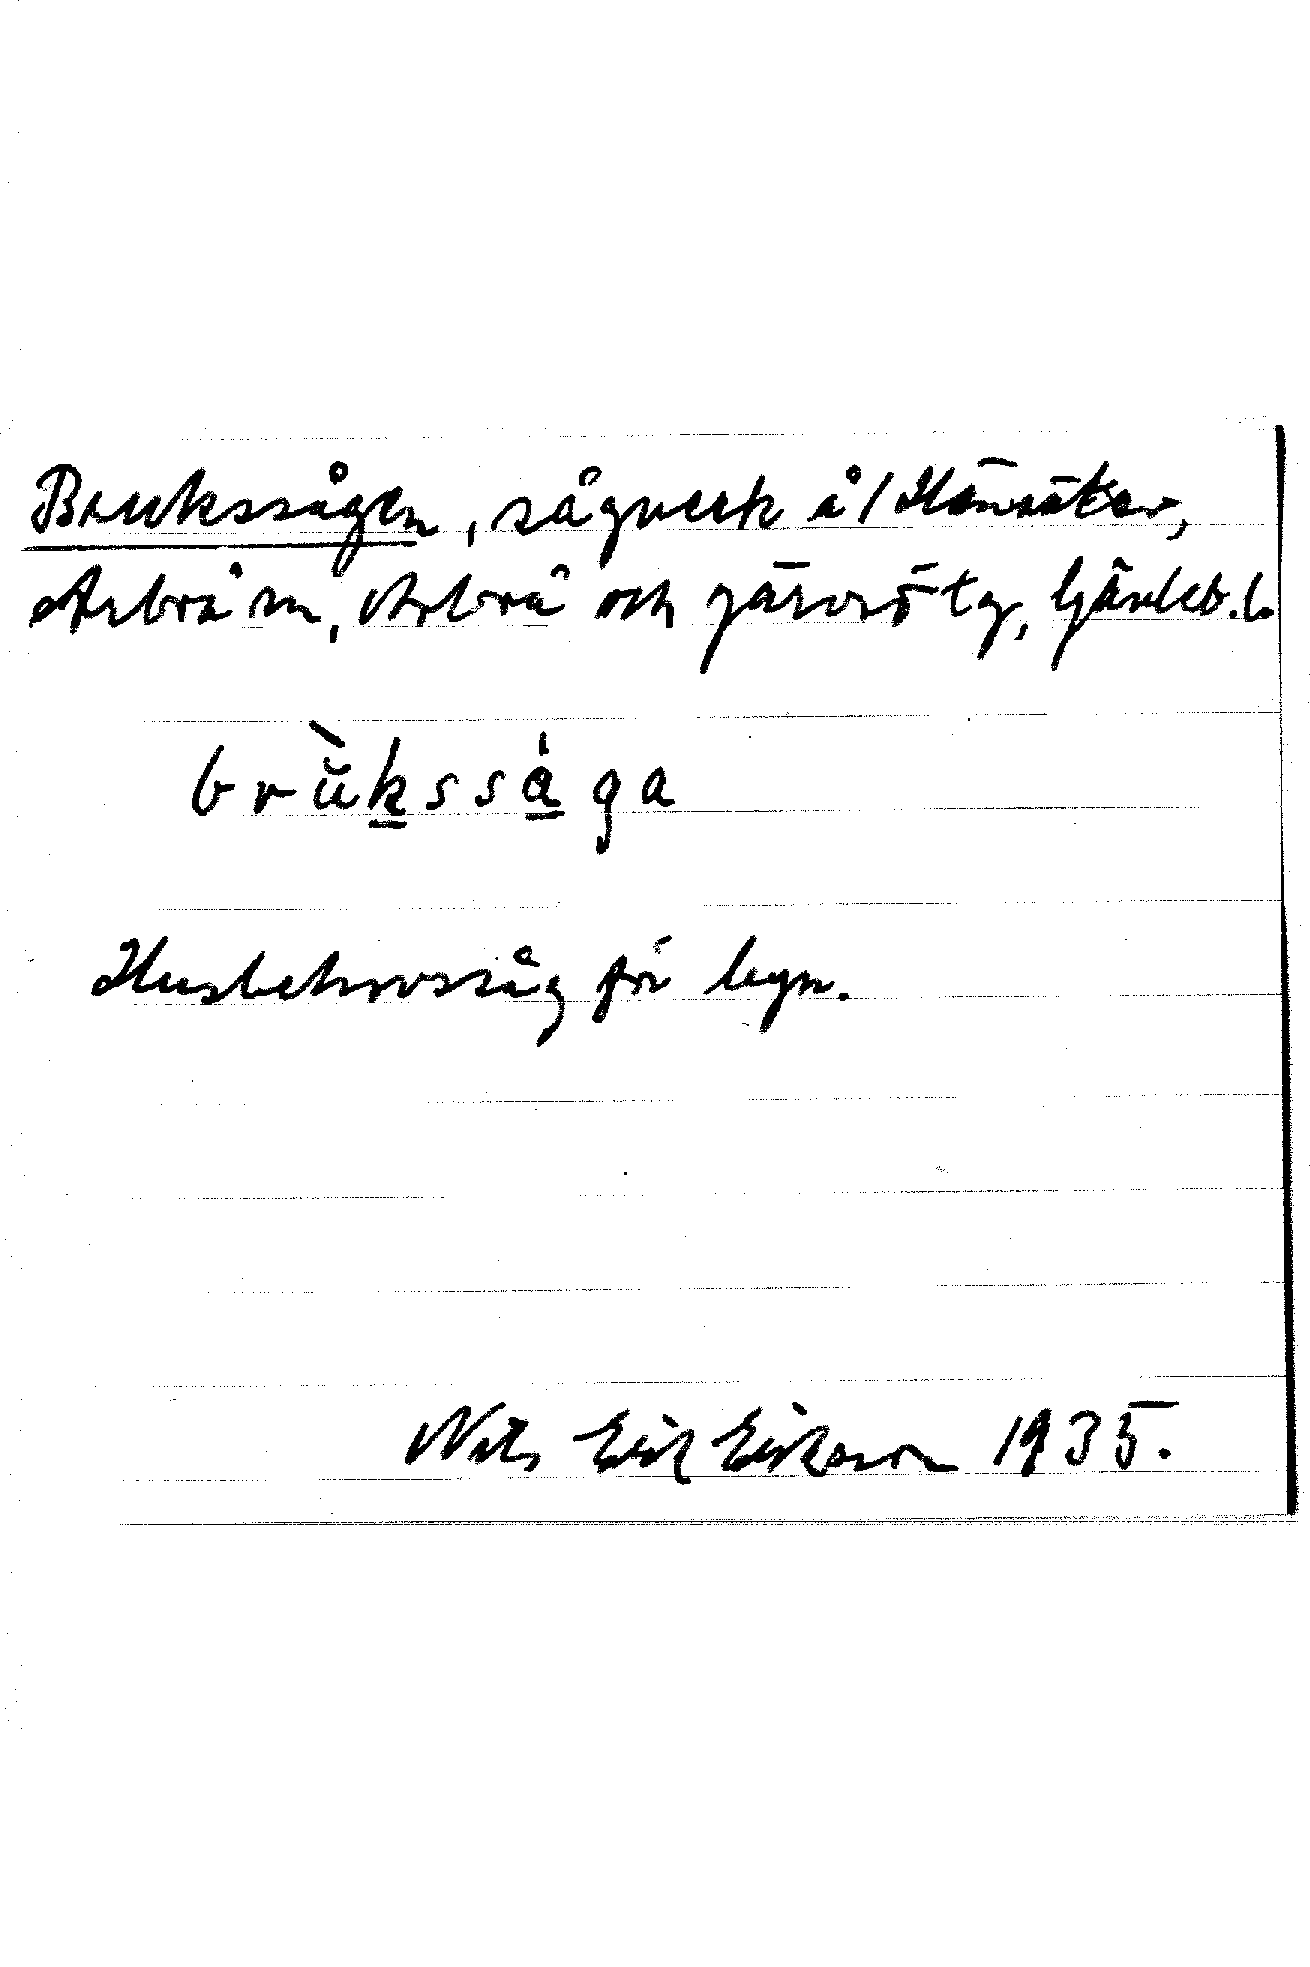 Brukssågen, sågverk å/Hänsäter,
Arbrå sn, Arbrå och Järvsö tg, Gävleb. l.
brŭ̀kssåga
Husbehovssåg för byn.
Nils Erik Eriksson 1935.